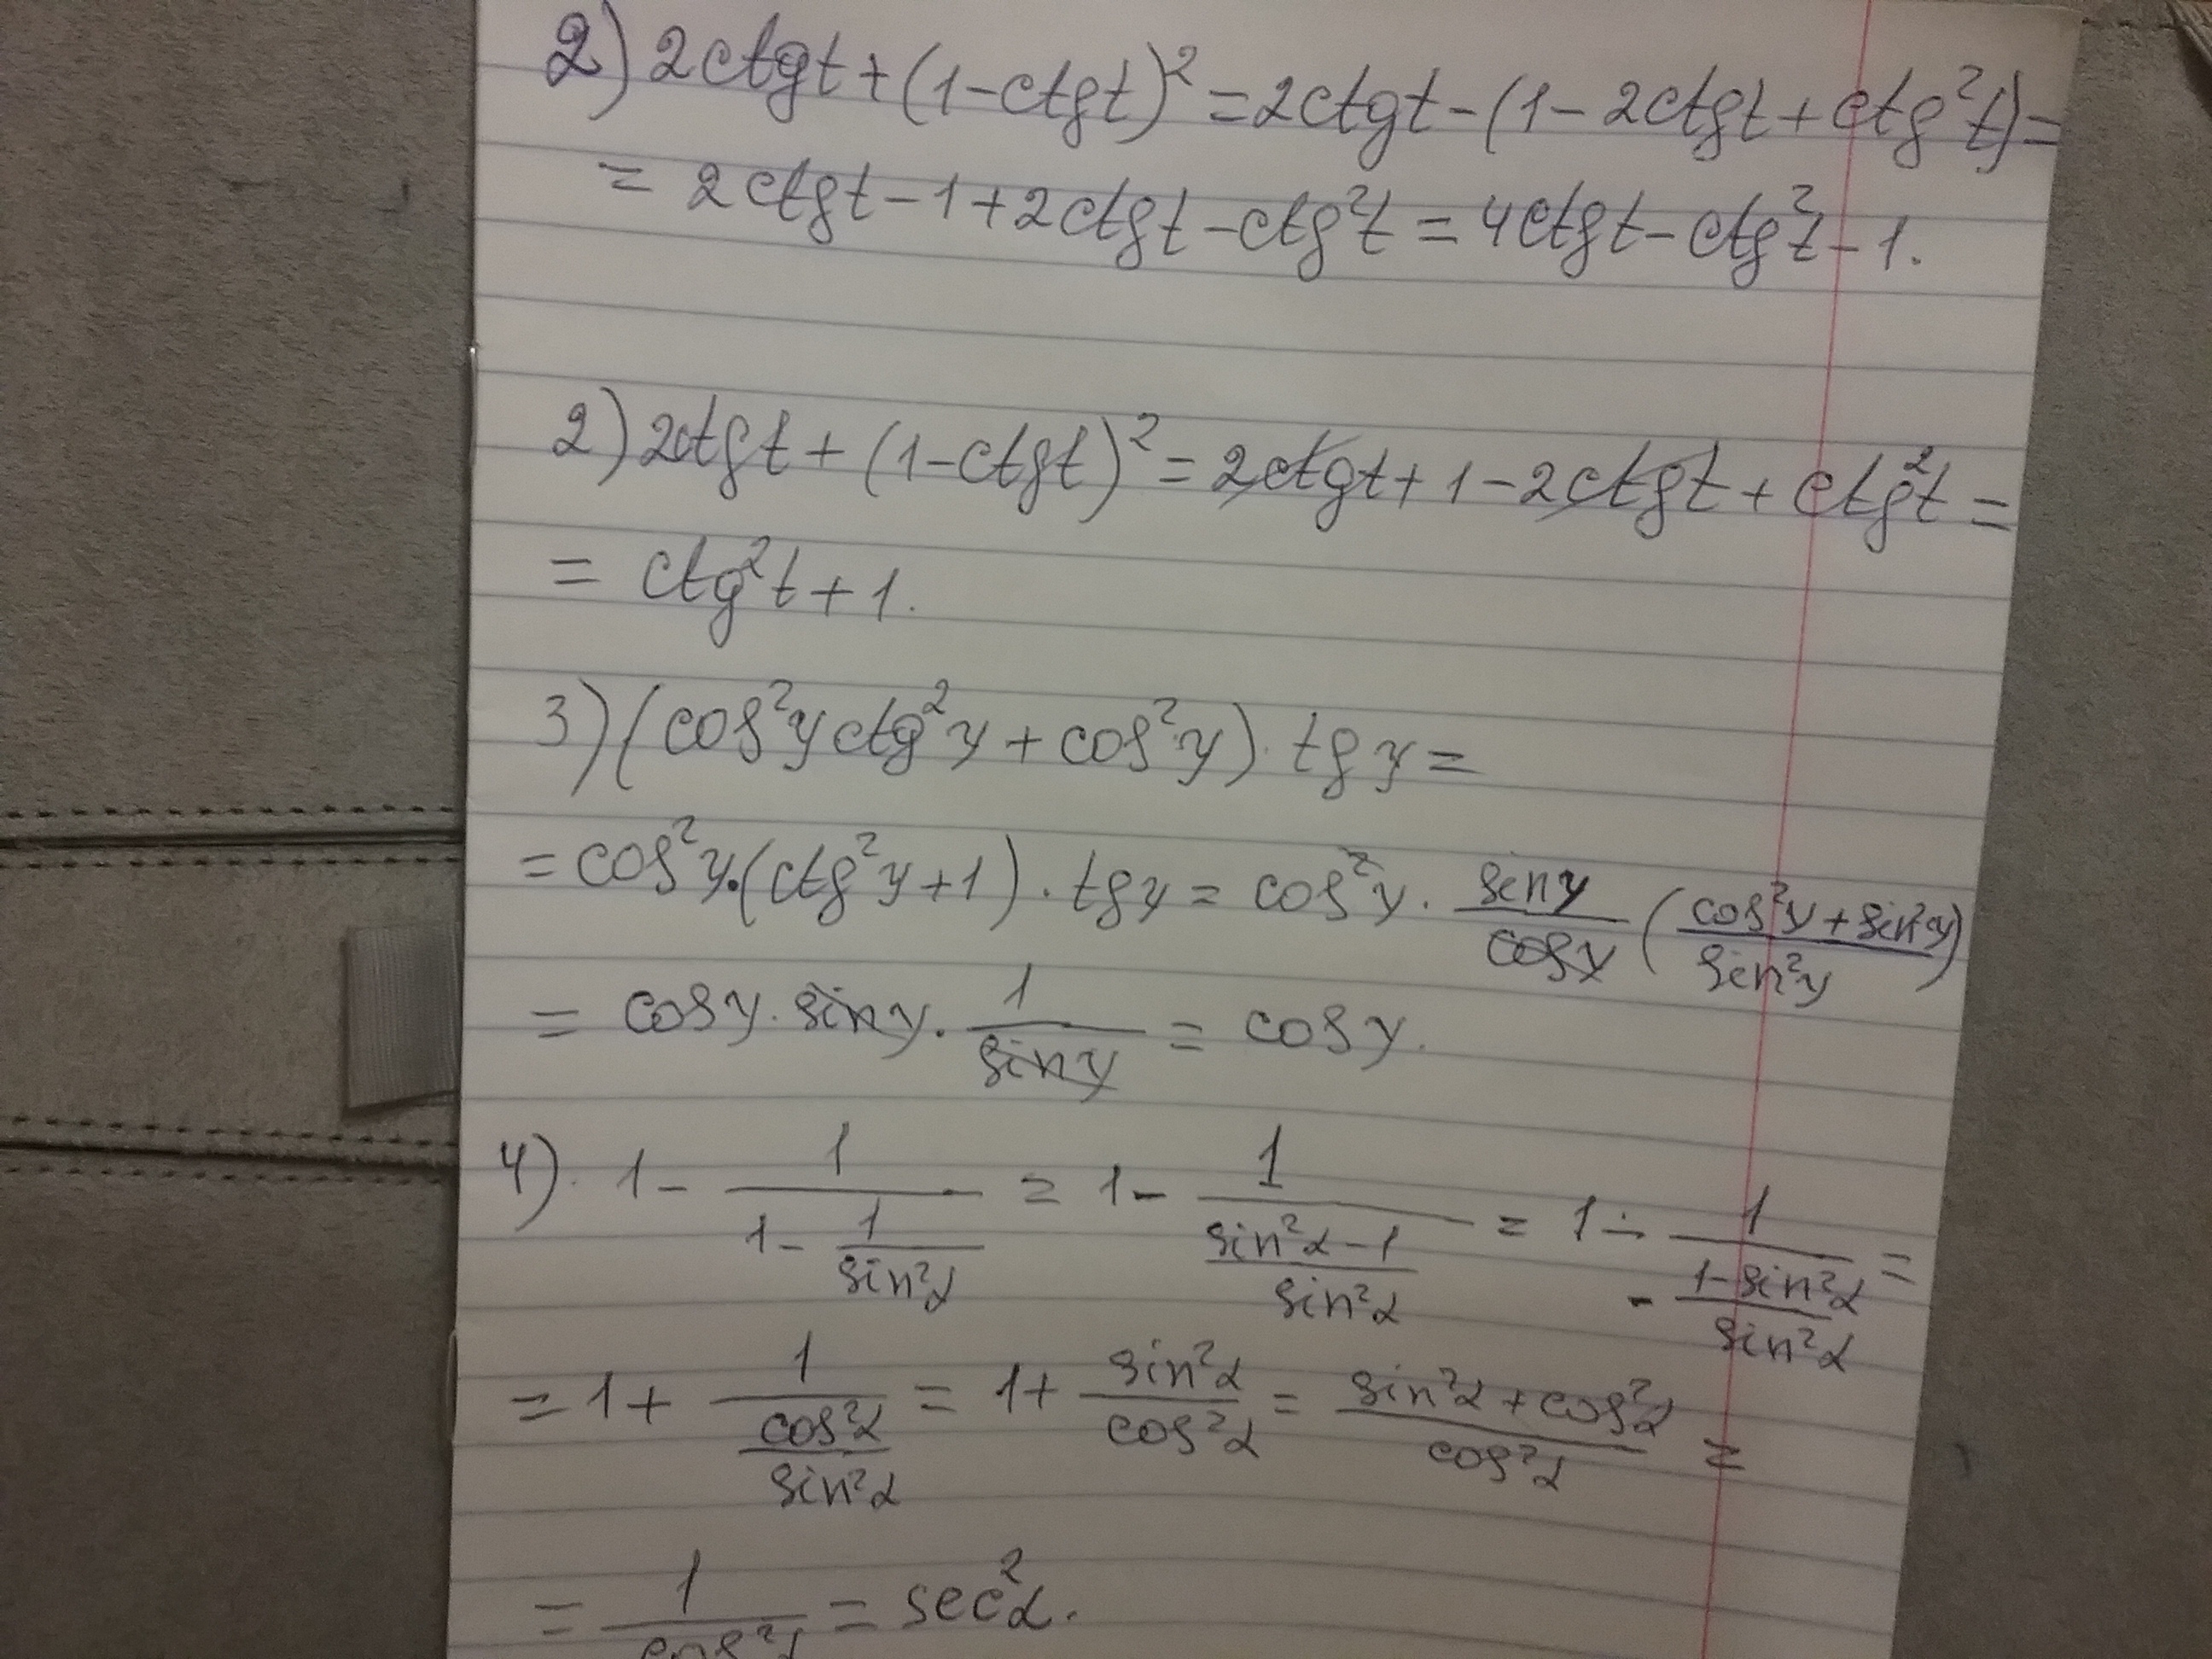 2) 2ctgt + (1-ctgt)² = 2ctgt - (1 - 2ctgt + ctg²t) =
= 2ctgt - 1 + 2ctgt - ctg²t = 4ctgt - ctg²t - 1.
2) 2ctgt + (1-ctgt)² = 2ctgt + 1 - 2ctgt + ctg²t =
= ctg²t + 1.
3) (cos²y ctg²y + cos²y) · tgy =
= cos²y · (ctg²y + 1) · tgy = cos²y · siny/cosy ((cos²y + sin²y)/sin²y)
= cosy · siny · 1/siny = cosy.
4). 1 - 1/(1 - 1/sin²α) = 1 - 1/((sin²α - 1)/sin²α) = 1 - 1/(-(1 - sin²α)/sin²α) =
= 1 + 1/(cos²α/sin²α) = 1 + sin²α/cos²α = (sin²α + cos²α)/cos²α =
= 1/cos²α = sec²α.